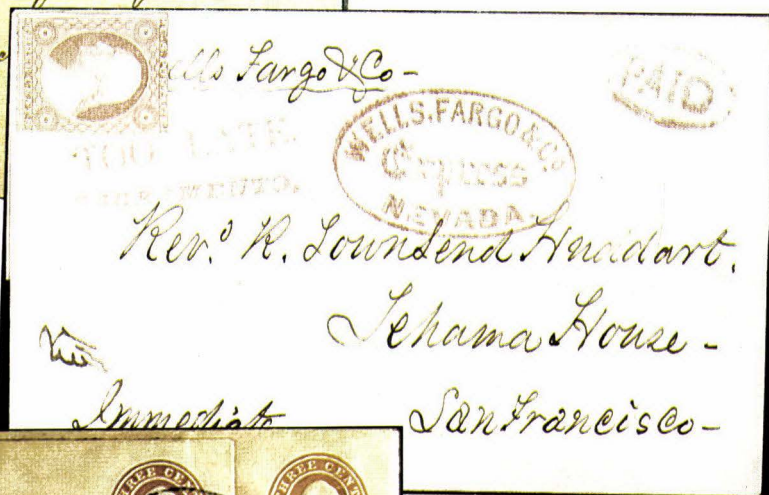 Wells Fargo & Co -
PAID
TOO LATE
SACRAMENTO.
WELLS, FARGO & CO
Express
NEVADA.
Rev.d R. Townsend Huddart.
Tehama House -
Immediate
San Francisco -
THREE CENTS
THREE CENTS